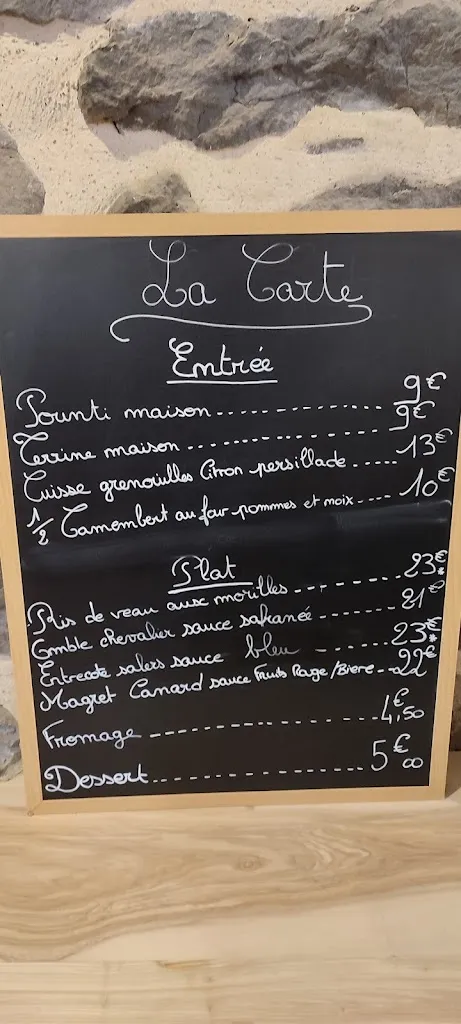 La Carte
Entrée
Pounti maison ............... 9€
Terrine maison ............... 9€
Cuisse grenouilles Citron persillade ..... 13€
1/2 Camembert au four pommes et noix .... 10€
Plat
Ris de veau aux morilles ......... 23€*
Omble chevalier sauce safranée ........ 21€
Entrecote salers sauce bleu ....... 23€*
Magret Canard sauce Fruits Rouge/Biere ... 22€
Fromage .................... 4,50€
Dessert .................... 5€00